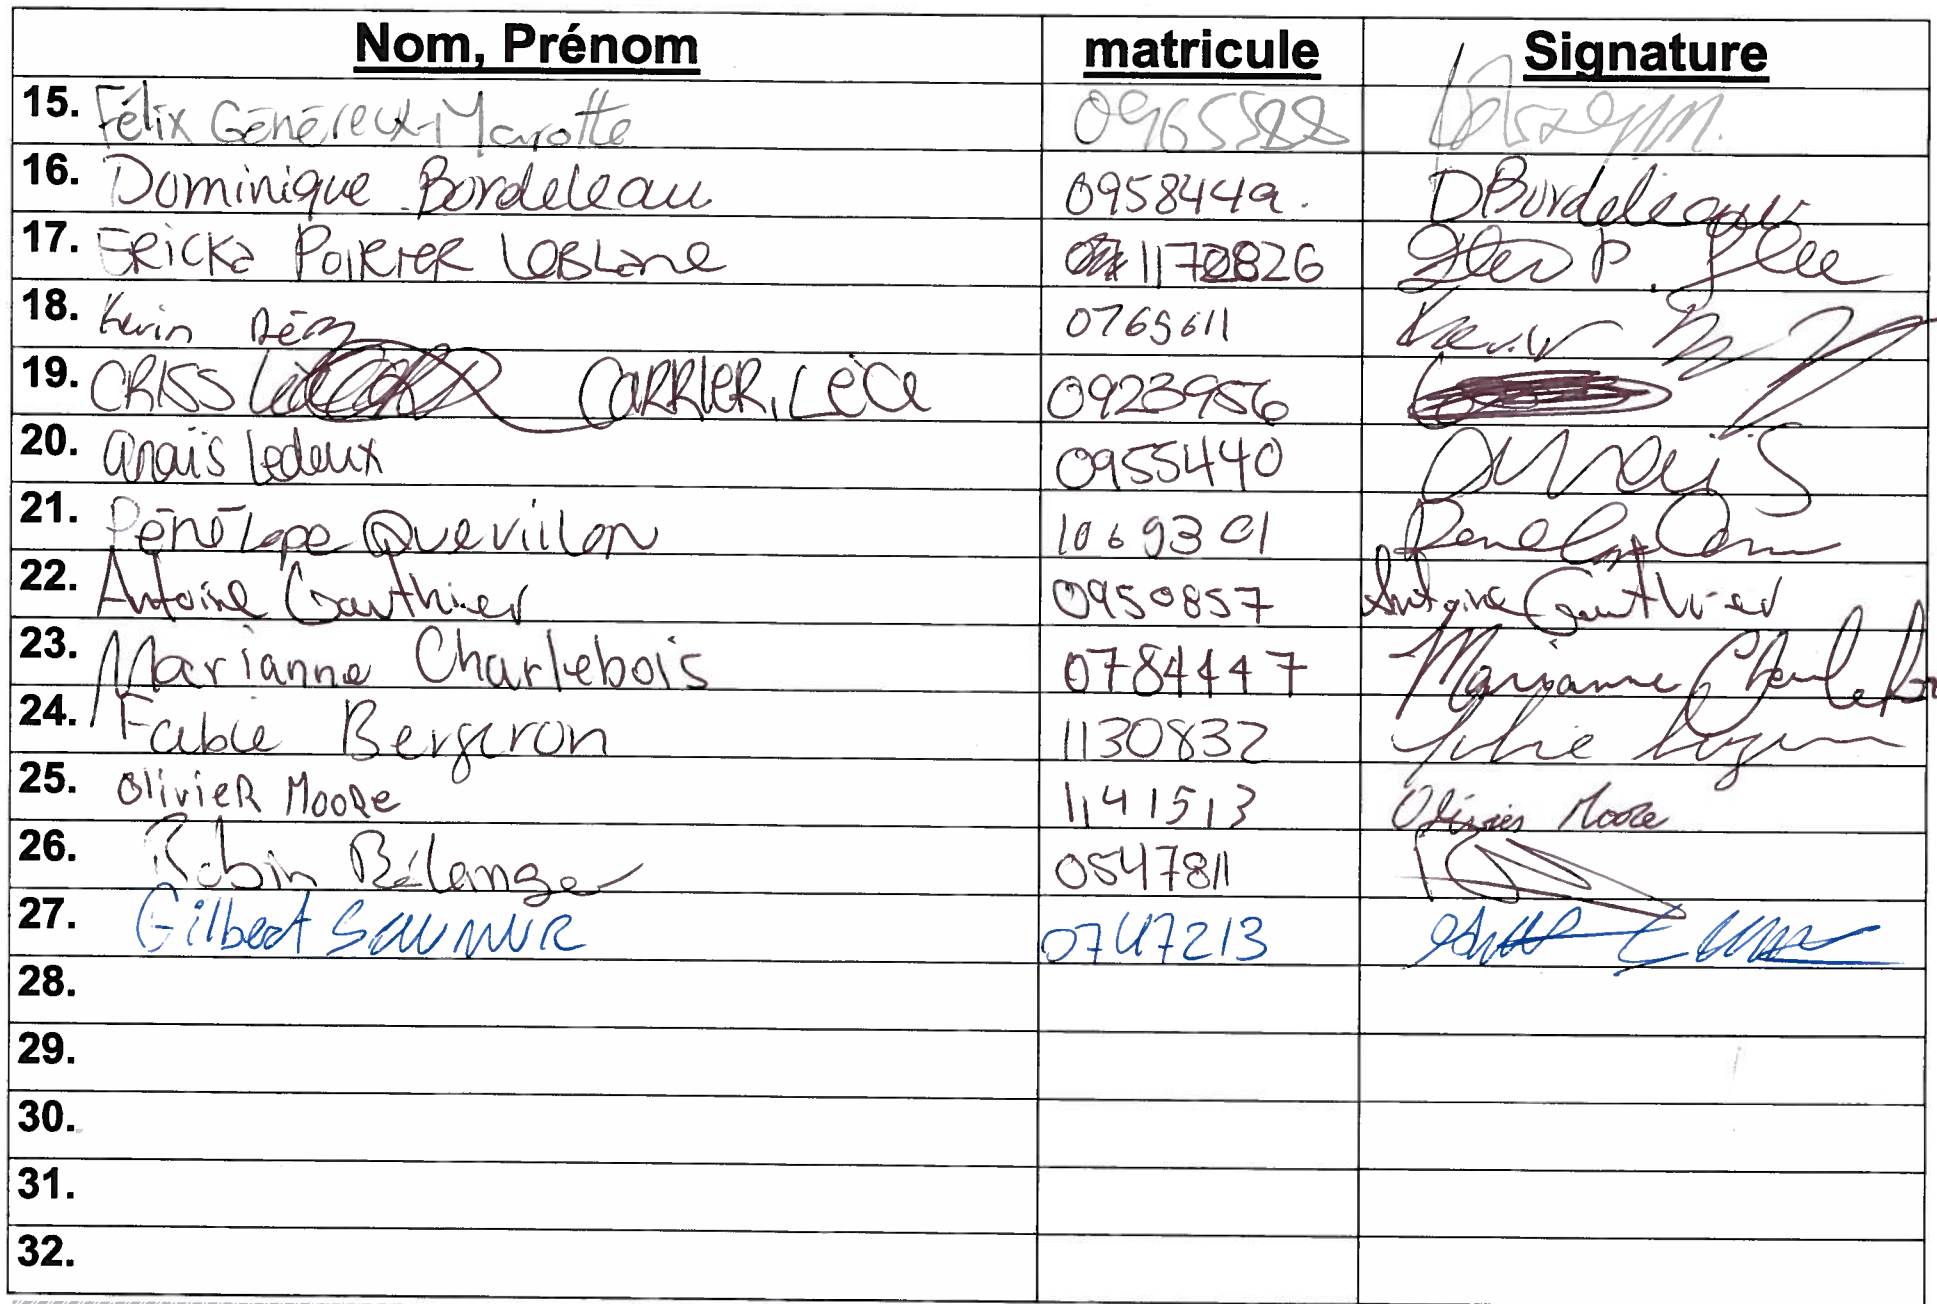 Nom, Prénom matricule Signature
15. Félix Généreux-Marotte 0965588
16. Dominique Bordeleau 0958449. DBordeleau
17. Ericka Poirier LeBlanc 1170826
18. Kevin 0765611 Kevin
19. CRISS CARRIER, LÉCA 0923956
20. Anaïs Ledoux 0955440 Anaïs
21. Pénélope Quevillon 1069301
22. Antoine Gauthier 0950857 Antoine Gauthier
23. Marianne Charlebois 0784447 Marianne Charlebois
24. Fabie Bergeron 1130832
25. Olivier Moore 1141513 Olivier Moore
26. Robin Bélanger 0547811
27. Gilbert Saumur 0747213
28.
29.
30.
31.
32.